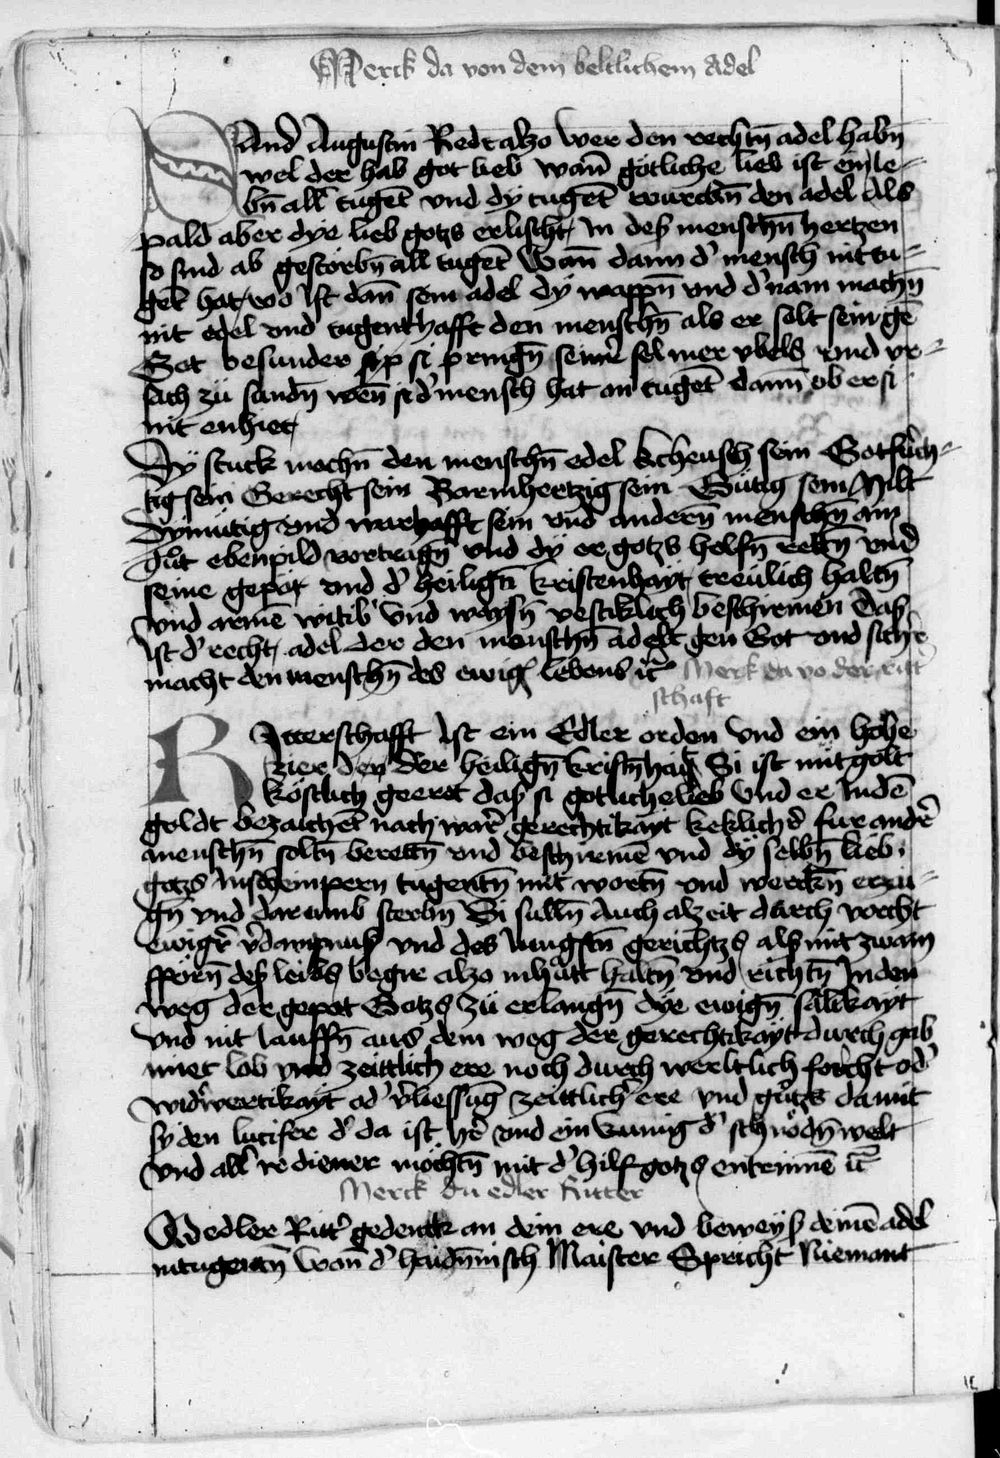 Merck da von dem beltlichem Adel
Sand Augustin Redt alzo wer den rechtn̄ adel habn̄
wel der hab got lieb wan̄ götliche lieb ist ein le-
bn̄ all tugēt vnd dy tugēt wurcken̄ den adel Als
pald aber dye lieb gotz erlischt in des menschn̄ hertzen
so sind ab gestorbn̄ all tugēt Wan̄ dann d' mensch nit tu-
gēt hat wo ist dan̄ sein adel dÿ wappn̄ vnd d' nam machn̄
nit edel vnd tugenthafft den menschn̄ als er solt sein gē
Got besunder sÿ si pringn̄ seinr̄ sel mer vbels vnd vr-
sach zü sundn̄ wen̄ si d' mensch hat an tugēt dann ob er si
nit enhiet
Dÿ stuck machn̄ den menschn̄ edel kcheusch sein Gotfürch-
tig sein Gerecht sein Barmhertzig sein Gütig sein Milt
Dymütig vnd warhafft sein vnd andern̄ menschn̄ ain
gůt ebenpild vortragn̄ vnd dÿ er gotzs helfn̄ rettn̄ vnd
seine gepot vnd d' heilign̄ kristenhayt treülich haltn̄
vnd armē witib' vnd waysn̄ vestiklich beschirmen Das
ist d' recht adel der den menschn̄ adelt gen Got vnd sicher
macht den menschn̄ des ewign̄ lebens ꝛc̄ Merk da vo der ritt'
schaft
Ritterschafft ist ein Edler orden vnd ein hohe
zier den der heilign̄ kristn̄hait Si ist mit golt
köstlich geeret das si gotliche lieb vnd er in dē
goldt bezaichēt nach warr̄ gerechtikayt keklich d' fur andr̄
menschn̄ soltn̄ berettn̄ vnd beschirmē vnd dÿ selbn̄ lieb
gotzs inscheinpern tugentn̄ mit wortn̄ vnd werckn̄ erzai-
gn̄ vnd darumb sterbn̄ Si sulln̄ Auch alzeit durch vorcht
ewigr̄ v'dampnuss vnd des iungstn̄ gerichtzs als mit zwain
sporn̄ des leibs begir alzo inhalt haltn̄ vnd richtn̄ in den
weg der gepot Gotzs zü erlangn̄ dye ewign̄ salikayt
vnd nit lauffn̄ aus dem weg der gerechtikayt durch gab
miet lob vnd zeittlich ere noch durch werltlich forcht od'
wid'wertikayt od' v'liessūg zeittlich' ere vnd gůtzs damit
sy den lucifer d' da ist hr̄ vnd ein kunig d' schnödn̄ welt
vnd all' re diener möchtn̄ mit d' hilf gotzs entrinnē ꝛc̄
Merck du edler Ritter
O edler Ritt' gedenck an dein ere vnd beweys deinē adel
mit tugentn̄ Wan̄ d' haidn̄nisch Maister Spricht Niemant